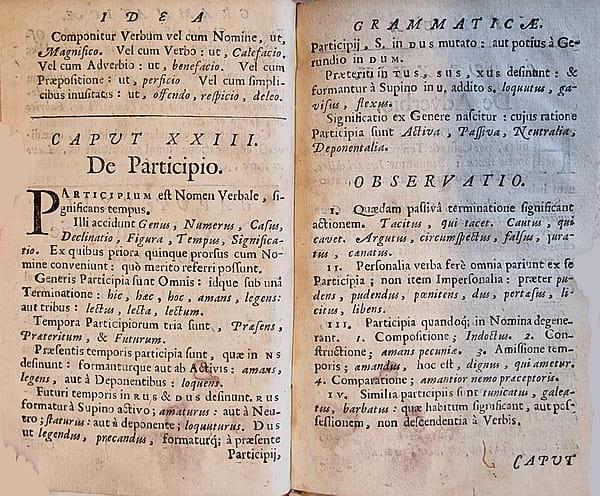 IDEA
Componitur Verbum vel cum Nomine, ut,
Magnifico. Vel cum Verbo : ut, Calefacio.
Vel cum Adverbio : ut, benefacio. Vel cum
Præpositione : ut, perficio Vel cum simpli-
cibus inusitatis : ut, offendo, respicio, deleo.
CAPVT XXIII.
De Participio.
PARTICIPIUM est Nomen Verbale, si-
gnificans tempus.
Illi accidunt Genus, Numerus, Casus,
Declinatio, Figura, Tempus, Significa-
tio. Ex quibus priora quinque prorsus cum No-
mine conveniunt : quò meritò referri possunt.
Generis Participia sunt Omnis : idque sub unâ
Terminatione : hic, hæc, hoc, amans, legens:
aut tribus : lectus, lecta, lectum.
Tempora Participiorum tria sunt, Præsens,
Præteritum, & Futurum.
Præsentis temporis participia sunt, quæ in NS
desinunt : formanturque aut ab Activis : amans,
legens, aut à Deponentibus : loquens.
Futuri temporis in RUS & DUS desinunt. RUS
formatur à Supino activo; amaturus : aut à Neu-
tro; staturus : aut à deponente; loquuturus. DUS
ut legendus, precandus, formaturq; à præsente
Participij,
GRAMMATICÆ.
Participij, S. in DUS mutato : aut potius à Ge-
rundio in DUM.
Præteriti in TUS, SUS, XUS desinunt : &
formantur à Supino in u, addito s. loquutus, ga-
visus, flexus.
Significatio ex Genere nascitur : cujus ratione
Participia sunt Activa, Passiva, Neutralia,
Deponentalia.
OBSERVATIO.
I. Quædam passivâ terminatione significant
actionem. Tacitus, qui tacet. Cautus, qui
cavet. Argutus, circumspectus, falsus, jura-
tus, cœnatus.
II. Personalia verba ferè omnia pariunt ex se
Participia ; non item Impersonalia : præter pu-
dens, pudendus, pœnitens, dus, pertæsus, li-
citus, libens.
III. Participia quandoq; in Nomina degene-
rant. 1. Compositione ; Indoctus. 2. Con-
structione; amans pecuniæ. 3. Amissione tem-
poris ; amandus, hoc est, dignus, qui ametur.
4. Comparatione ; amantior nemo præceptoris.
IV. Similia participiis sunt tunicatus, galea-
tus, barbatus : quæ habitum significant, aut pos-
sessionem, non descendentia à Verbis.
CAPUT